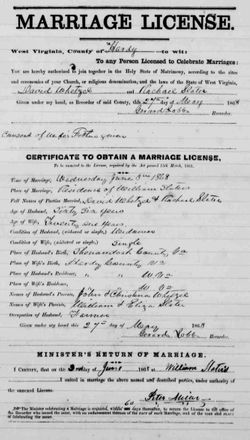 MARRIAGE LICENSE.
West Virginia, County of Hardy to-wit:
To any Person Licensed to Celebrate Marriages:
You are hereby authorized to join together in the Holy State of Matrimony, according to the rites
and ceremonies of your Church, or religious denomination, and the laws of the State of West Virginia,
David Whetzel and Rachael Slater
Given under my hand, as Recorder of said County, this 27 day of May 1868
Recorder.
Consent of Wifes Father given
CERTIFICATE TO OBTAIN A MARRIAGE LICENSE,
To be annexed to the License, required by the Act passed 15th March, 1861.
Time of Marriage, Wednesday June 3rd 1868
Place of Marriage, Residence of William Slater
Full Names of Parties Married, David Whetzel & Rachael Slater
Age of Husband, Sixty Six Years
Age of Wife, Twenty one Years
Condition of Husband, (widowed or single) Widower
Condition of Wife, (widowed or single) Single
Place of Husband's Birth, Shenandoah County Va
Place of Wife's Birth, Hardy County Va
Place of Husband's Residence, " " W Va
Place of Wife's Residence, " " W Va
Names of Husband's Parents, John & Whetzel
Names of Wife's Parents, William & Eliza Slater
Occupation of Husband, Farmer
Given under my hand this 27 day of May 1868
Recorder.
MINISTER'S RETURN OF MARRIAGE.
I Certify, that on the 3 day of June 1868 at William Slater's
I united in marriage the above named and described parties, under authority of
the annexed License.
Peter Miller
The Minister celebrating a Marriage is required, within days thereafter, to return the License to the office of
the Recorder who issued the same, with an endorsement thereon of the fact of such marriage, and of the time and place of
celebrating the same.